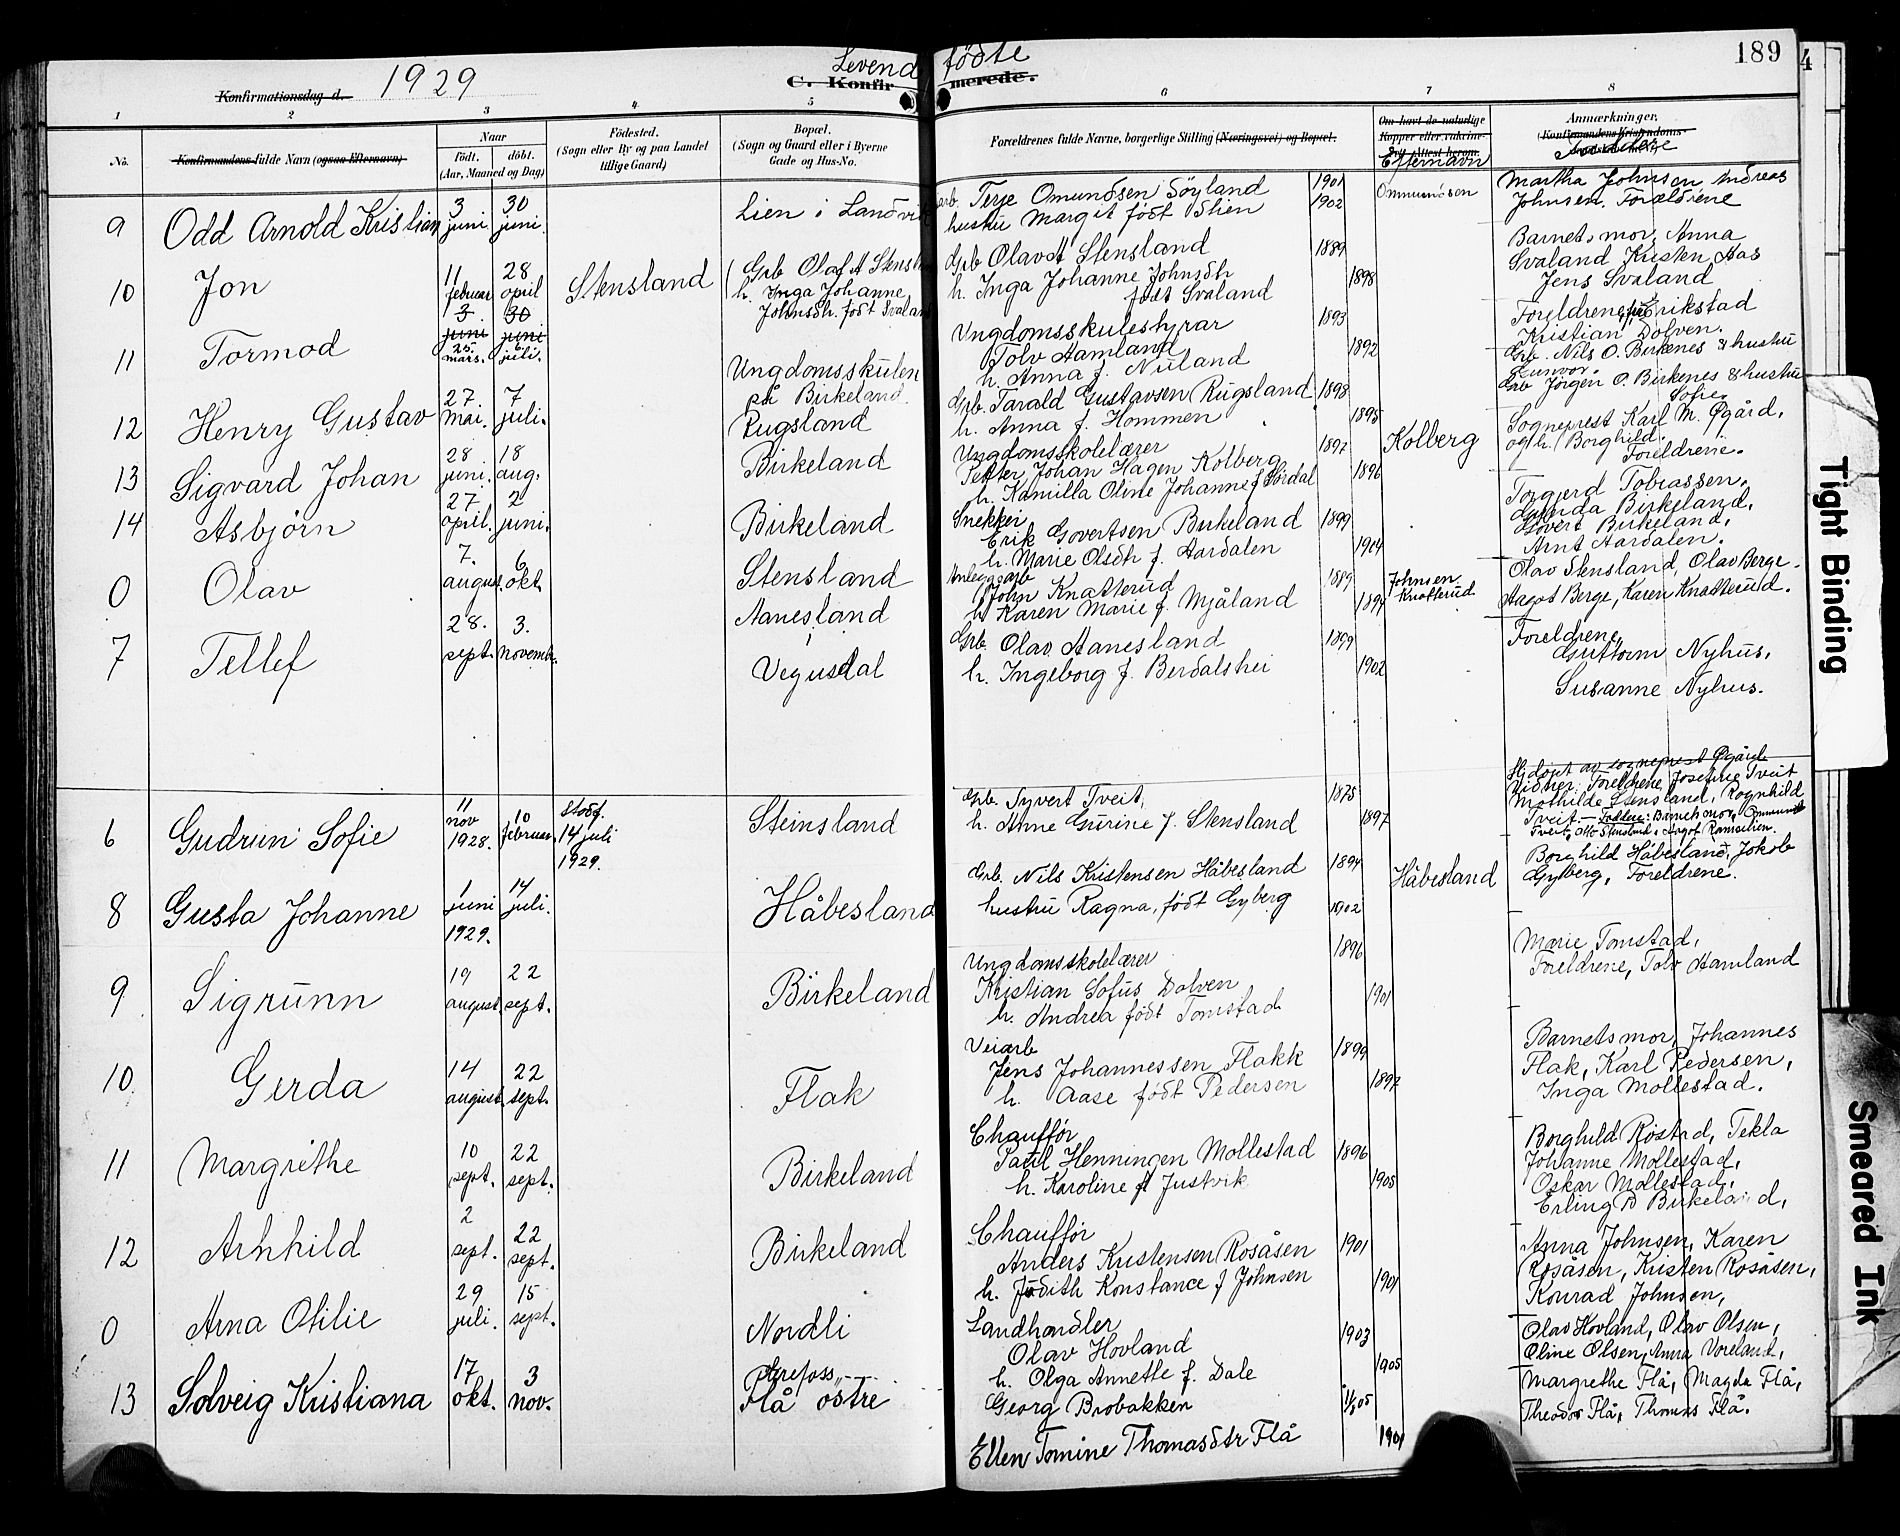 1929
Levend fødte
189
4
Konfirmationsdag d.
C. Konfirmerede.
1 2 3 4 5 6 7 8
No.
Konfirmandens fulde Navn (ogsaa Efternavn)
Naar
født. døbt.
(Aar, Maaned og Dag)
Fødested.
(Sogn eller By og paa Landet
tillige Gaard)
Bopæl.
(Sogn og Gaard eller i Byerne
Gade og Hus-No.
Forældrenes fulde Navne, borgerlige Stilling (Næringsvei) og Bopæl.
Om havt de naturlige
Kopper eller vaccine-
Efternavn
Anmærkninger.
(Konfirmandens Kristendoms-
Faddere
9 Odd Arnold Kristian
3 juni 30 juni.
Lien i Landvik
arb. Terje Omundsen Söyland 1901
hustru Margit født Slien 1902
Ommundsen
Martha Johnsen Andreas
Johnsen. Forældrene
10 Jon
11 februar 28 april
Stensland
Grb Olaf A Stensland
h. Inga Johanne
Johnsdh. født Svaland
Grb Olav A Stensland 1889
h. Inga Johanne Johnsdh 1898
født Svaland
Barnets mor, Anna
Svaland Kristen Aas
Jens Svaland
11 Tormod
3. juni 30 juni
25. mars. 6. juli.
Ungdomsskulen
på Birkeland.
Ungdomsskulestyrar 1893
Tolv Aamland 1892
h. Anna f. Nuland
Foreldrene, Erikstad
Kristian Dolven.
Grb. Nils O. Birkenes & hustru
Gunvor.
12 Henry Gustav
27 mai. 7 juli.
Rugsland
Grb. Tarald Gustavsen Rugsland 1898
h. Anna f. Hommen 1895
Grb Jørgen O. Birkenes & hustru
Sofie
13 Sigvard Johan
28 juni. 18 aug.
Birkeland
Ungdomsskolelærer 1897
Petter Johan Hagen Kolberg
h. Kamilla Oline Johanne f Sördal 1896
Kolberg
Sogneprest Karl M. Øgård,
og h. Borghild.
Foreldrene.
14 Asbjörn
27 april. 2 juni.
Birkeland
Snekker
Erik Govertsen Birkeland 1899
h. Marie Olsdh f. Aardalen 1904
Torgerd Tobiassen,
Gunda Birkeland,
Govert Birkeland,
Arnt Aardalen.
0 Olav
7. august. 6 okt.
Stensland
Anleggsarb
John Knatterud 1889
h. Karen Marie f. Mjåland 1894
Johnsen
Knatterud
Olav Stensland, Olav Berge
Aagot Berge, Karen Knatterud.
7 Tellef
28. sept. 3. novemb.
Aanesland
Vegusdal
Grb. Olav Aanesland 1899
h. Ingeborg f. Berdalshei 1902
Foreldrene
Guttorm Nyhus,
Susanne Nyhus.
6 Gudrun Sofie
11 nov 1928. 10 februar.
stodf.
14 juli
1929.
Steinsland
Grb. Syvert Tveit, 1875
h. Anne Gurine f. Stensland 1897
Hjdøpt av sogneprest Øgård
Vidner: Foreldrene, Josefine Tveit
Mathilde Stensland, Ragnhild
Tveit – Faddere: Barnets mor, Ommund
Tveit, Otto Stensland, Aagot Ramselien.
8 Gusta Johanne
1 juni 1929. 14 juli.
Håbesland
Grb. Nils Kristensen Håbesland 1894
hustru Ragna, født Gyberg 1902
Håbesland
Borghild Håbesland, Jakob
Gyberg, Foreldrene.
9 Sigrunn
19 august. 22 sept.
Birkeland
Ungdomsskolelærer 1896
Kristian Sofus Dolven
h. Andrea født Tomstad 1901
Marie Tomstad,
Foreldrene, Tolv Aamland
10 Gerda
14 august. 22 sept.
Flak
Veiarb
Jens Johannessen Flakk 1899
h. Aase født Pedersen 1897
Barnets mor, Johannes
Flak, Karl Pedersen,
Inga Mollestad.
11 Margrethe
10 sept. 22 sept.
Birkeland
Chauffør
Paul Henningen Mollestad 1896
h. Karoline f Justvik 1905
Borghild Røstad, Tekla
Johanne Mollestad,
Oskar Mollestad,
Erling B Birkeland,
12 Arnhild
2 sept. 22 sept.
Birkeland
Chauffør
Anders Kristensen Rosåsen 1901
h. Judith Konstance f Johnsen 1901
Anna Johnsen, Karen
Rosåsen, Kristen Rosåsen,
Konrad Johnsen,
0 Arna Otilie
29 juli. 15 sept.
Nordli
Landhandler
Olav Hovland 1903
h. Olga Annette f. Dale 1905
Olav Hovland, Olav Olsen,
Oline Olsen, Anna Voreland,
13 Solveig Kristiana
17 okt. 3 nov.
Flå østre
Georg Brobakken 11/5 05
Ellen Tomine Thomasdtr Flå 1901
Margrethe Flå, Magda Flå,
Theodor Flå, Thomas Flå.
Tight Binding
Smeared Ink